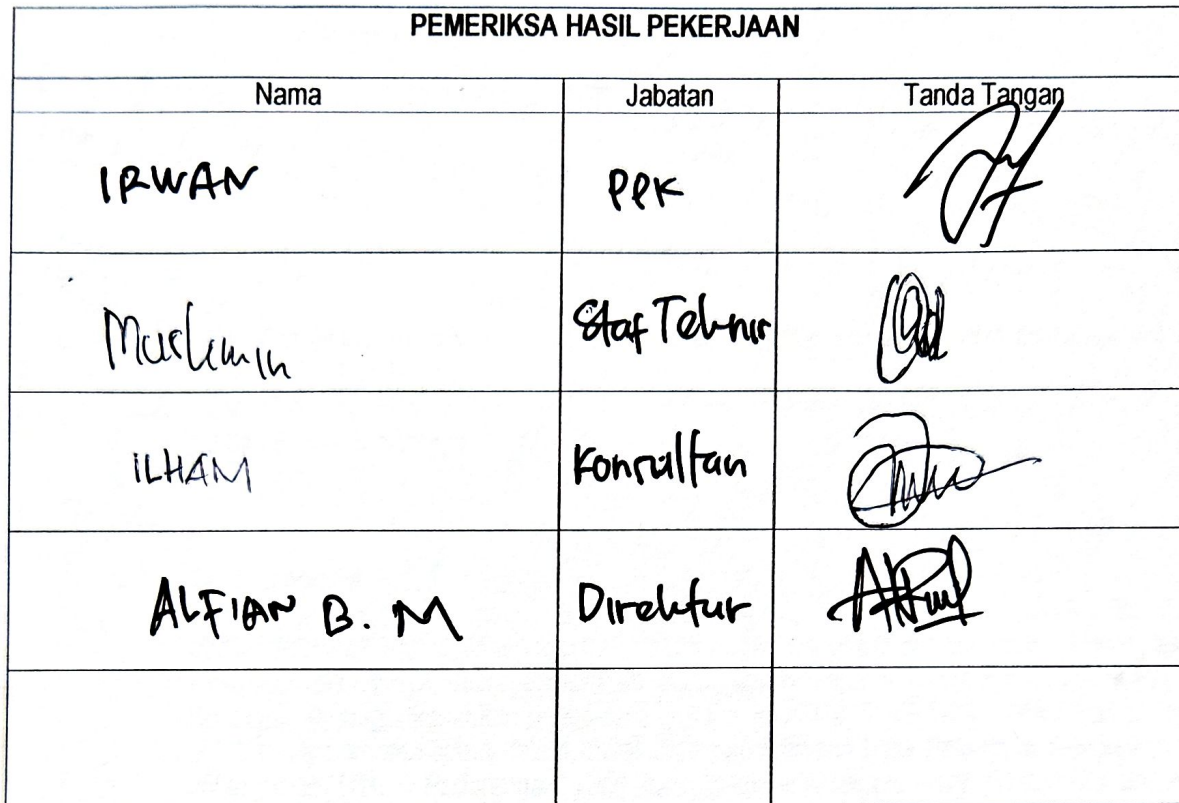 PEMERIKSA HASIL PEKERJAAN
Nama Jabatan Tanda Tangan
IRWAN PPK
Muslimin Staf Teknis
ILHAM Konsultan
ALFIAN B. M Direktur